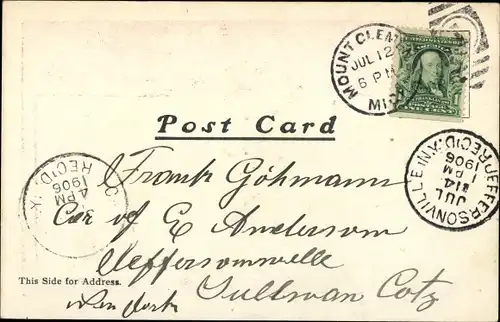 MOUNT CLEM
JUL 12
6 PM
MICH
Post Card
JEFFERSONVILLE, N.Y. REC'D.
JUL
14
1 PM
1906
REC'D.
4 PM
1906
Frank Göhmann
Car of E Anderson
Jeffersonville
This Side for Address.
New York
Sullivan Cotz